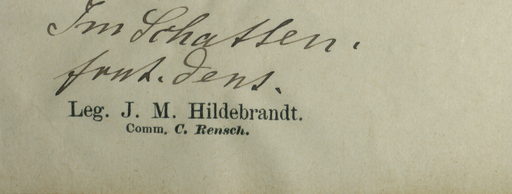 Im Schatten.
frut. dens.
Leg. J. M. Hildebrandt.
Comm. C. Rensch.